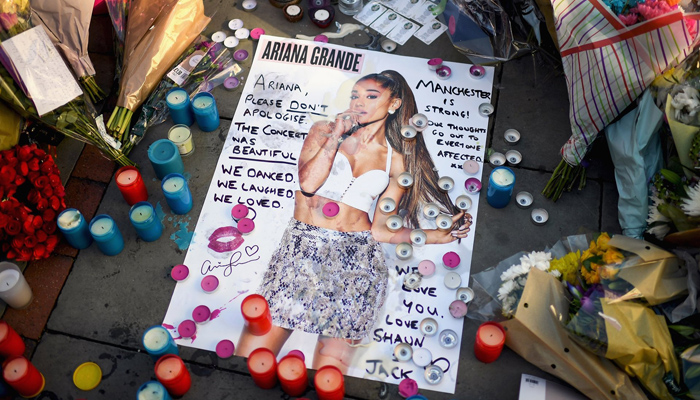 ARIANA GRANDE
ARIANA,
PLEASE DON'T
APOLOGISE.
THE CONCERT
WAS
BEAUTIFUL
WE DANCED.
WE LAUGHED.
WE LOVED.
MANCHESTER
IS
STRONG!
OUR THOUGHTS
GO OUT TO
EVERYONE
AFFECTED
xx
WE
LOVE
YOU.
LOVE
SHAUN
JACK